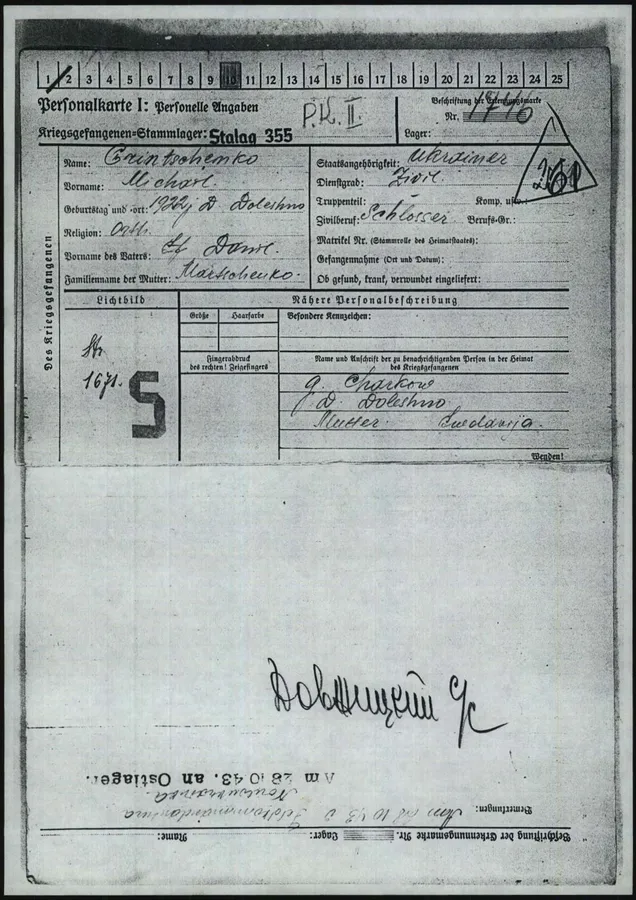 1 2 3 4 5 6 7 8 9 10 11 12 13 14 15 16 17 18 19 20 21 22 23 24 25
Personalkarte I: Personelle Angaben
P.K. II.
Beschriftung der Erkennungsmarke
Nr. 1746
Kriegsgefangenen-Stammlager: Stalag 355
Lager:
Des Kriegsgefangenen
Name: Grintschenko
Vorname: Michail
Geburtstag und -ort: 1922 j D. Doleshno
Religion: Orth.
Vorname des Vaters:
Familienname der Mutter: Martschenko.
Staatsangehörigkeit: Ukrainer
Dienstgrad: Zivil.
Truppenteil: Komp. usw.:
Zivilberuf: Schlosser Berufs-Gr.:
Matrikel Nr. (Stammrolle des Heimatstaates):
Gefangennahme (Ort und Datum):
Ob gesund, krank, verwundet eingeliefert:
Lichtbild
Nähere Personalbeschreibung
Größe Haarfarbe Besondere Kennzeichen:
Fingerabdruck
des rechten! Zeigefingers
Name und Anschrift der zu benachrichtigenden Person in der Heimat
des Kriegsgefangenen
Str.
1671.
S
g. Charkow
D. Doleshno.
Mutter
Wenden!
Am 28.10.43. an Ostlager.
Bemerkungen: Am 28 10 43
Beschriftung der Erkennungsmarke Nr. Lager: Name: